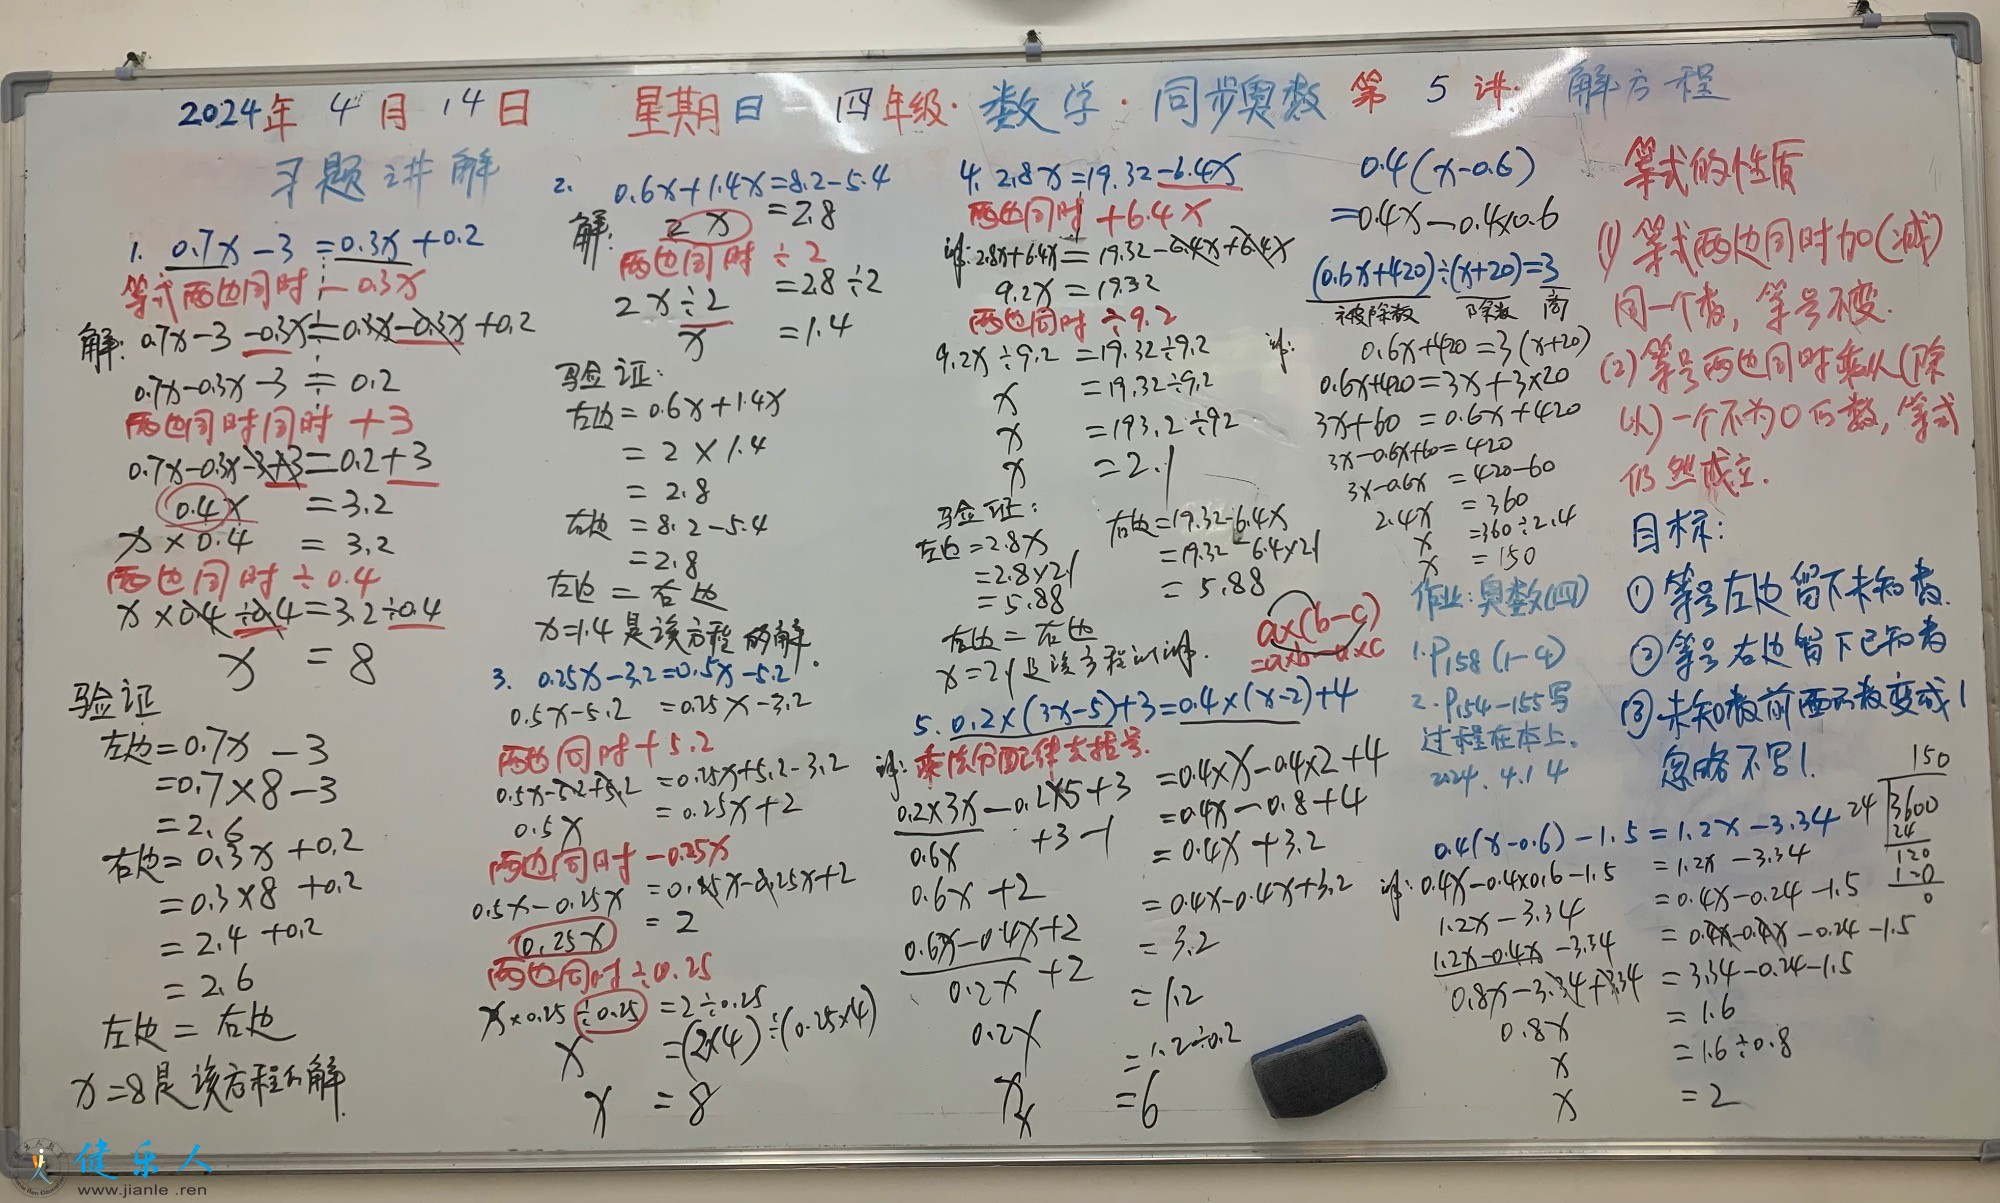 2024年 4月 14日 星期日 四年级·数学·同步奥数 第 5 讲· 解方程
习题讲解
1. 0.7x-3=0.3x+0.2
等式两边同时-0.3x
解: 0.7x-3-0.3x=0.3x-0.3x+0.2
0.7x-0.3x-3=0.2
两边同时同时+3
0.7x-0.3x-3+3=0.2+3
0.4x=3.2
x×0.4=3.2
两边同时÷0.4
x×0.4÷0.4=3.2÷0.4
x=8
验证
左边=0.7x-3
=0.7×8-3
=2.6
右边=0.3x+0.2
=0.3×8+0.2
=2.4+0.2
=2.6
左边=右边
x=8是该方程的解.
2. 0.6x+1.4x=8.2-5.4
解: 2x=2.8
两边同时÷2
2x÷2=2.8÷2
x=1.4
验证:
左边=0.6x+1.4x
=2×1.4
=2.8
右边=8.2-5.4
=2.8
左边=右边
x=1.4是该方程的解.
3. 0.25x-3.2=0.5x-5.2
0.5x-5.2=0.25x-3.2
两边同时+5.2
0.5x-5.2+5.2=0.25x+5.2-3.2
0.5x=0.25x+2
两边同时-0.25x
0.5x-0.25x=0.25x-0.25x+2
0.25x=2
两边同时÷0.25
x×0.25÷0.25=2÷0.25
x=(2×4)÷(0.25×4)
x=8
4. 2.8x=19.32-6.4x
两边同时+6.4x
解: 2.8x+6.4x=19.32-6.4x+6.4x
9.2x=19.32
两边同时÷9.2
9.2x÷9.2=19.32÷9.2
x=19.32÷9.2
x=193.2÷92
x=2.1
验证:
左边=2.8x
=2.8×2.1
=5.88
右边=19.32-6.4x
=19.32-6.4×2.1
=5.88
左边=右边
x=2.1是该方程的解.
5. 0.2×(3x-5)+3=0.4×(x-2)+4
解: 乘法分配律去括号.
0.2×3x-0.2×5+3=0.4×x-0.4×2+4
0.6x+3-1=0.4x-0.8+4
=0.4x+3.2
0.6x+2
0.6x-0.4x+2=0.4x-0.4x+3.2
0.2x+2=3.2
=1.2
0.2x
=1.2÷0.2
x
x=6
0.4(x-0.6)
=0.4x-0.4×0.6
(0.6x+420)÷(x+20)=3
被除数 除数 商
解: 0.6x+420=3(x+20)
0.6x+420=3x+3×20
3x+60=0.6x+420
3x-0.6x+60=420
3x-0.6x=420-60
2.4x=360
x=360÷2.4
x=150
a×(b-c)
=a×b-a×c
作业:奥数(四)
1.P158(1-4)
2.P154-155写
过程在本上.
2024.4.14
等式的性质
(1)等式两边同时加(减)
同一个数,等号不变.
(2)等号两边同时乘以(除
以)一个不为0的数,等式
仍然成立.
目标:
①等号左边留下未知数.
②等号右边留下已知数
③未知数前面的数变成1
忽略不写1.
0.4(x-0.6)-1.5=1.2x-3.34
解: 0.4x-0.4×0.6-1.5=1.2x-3.34
1.2x-3.34=0.4x-0.24-1.5
1.2x-0.4x-3.34=0.4x-0.4x-0.24-1.5
0.8x-3.34+3.34=3.34-0.24-1.5
0.8x=1.6
x=1.6÷0.8
x=2
150
24 3600
24
120
120
0
健乐人
www.jianle.ren